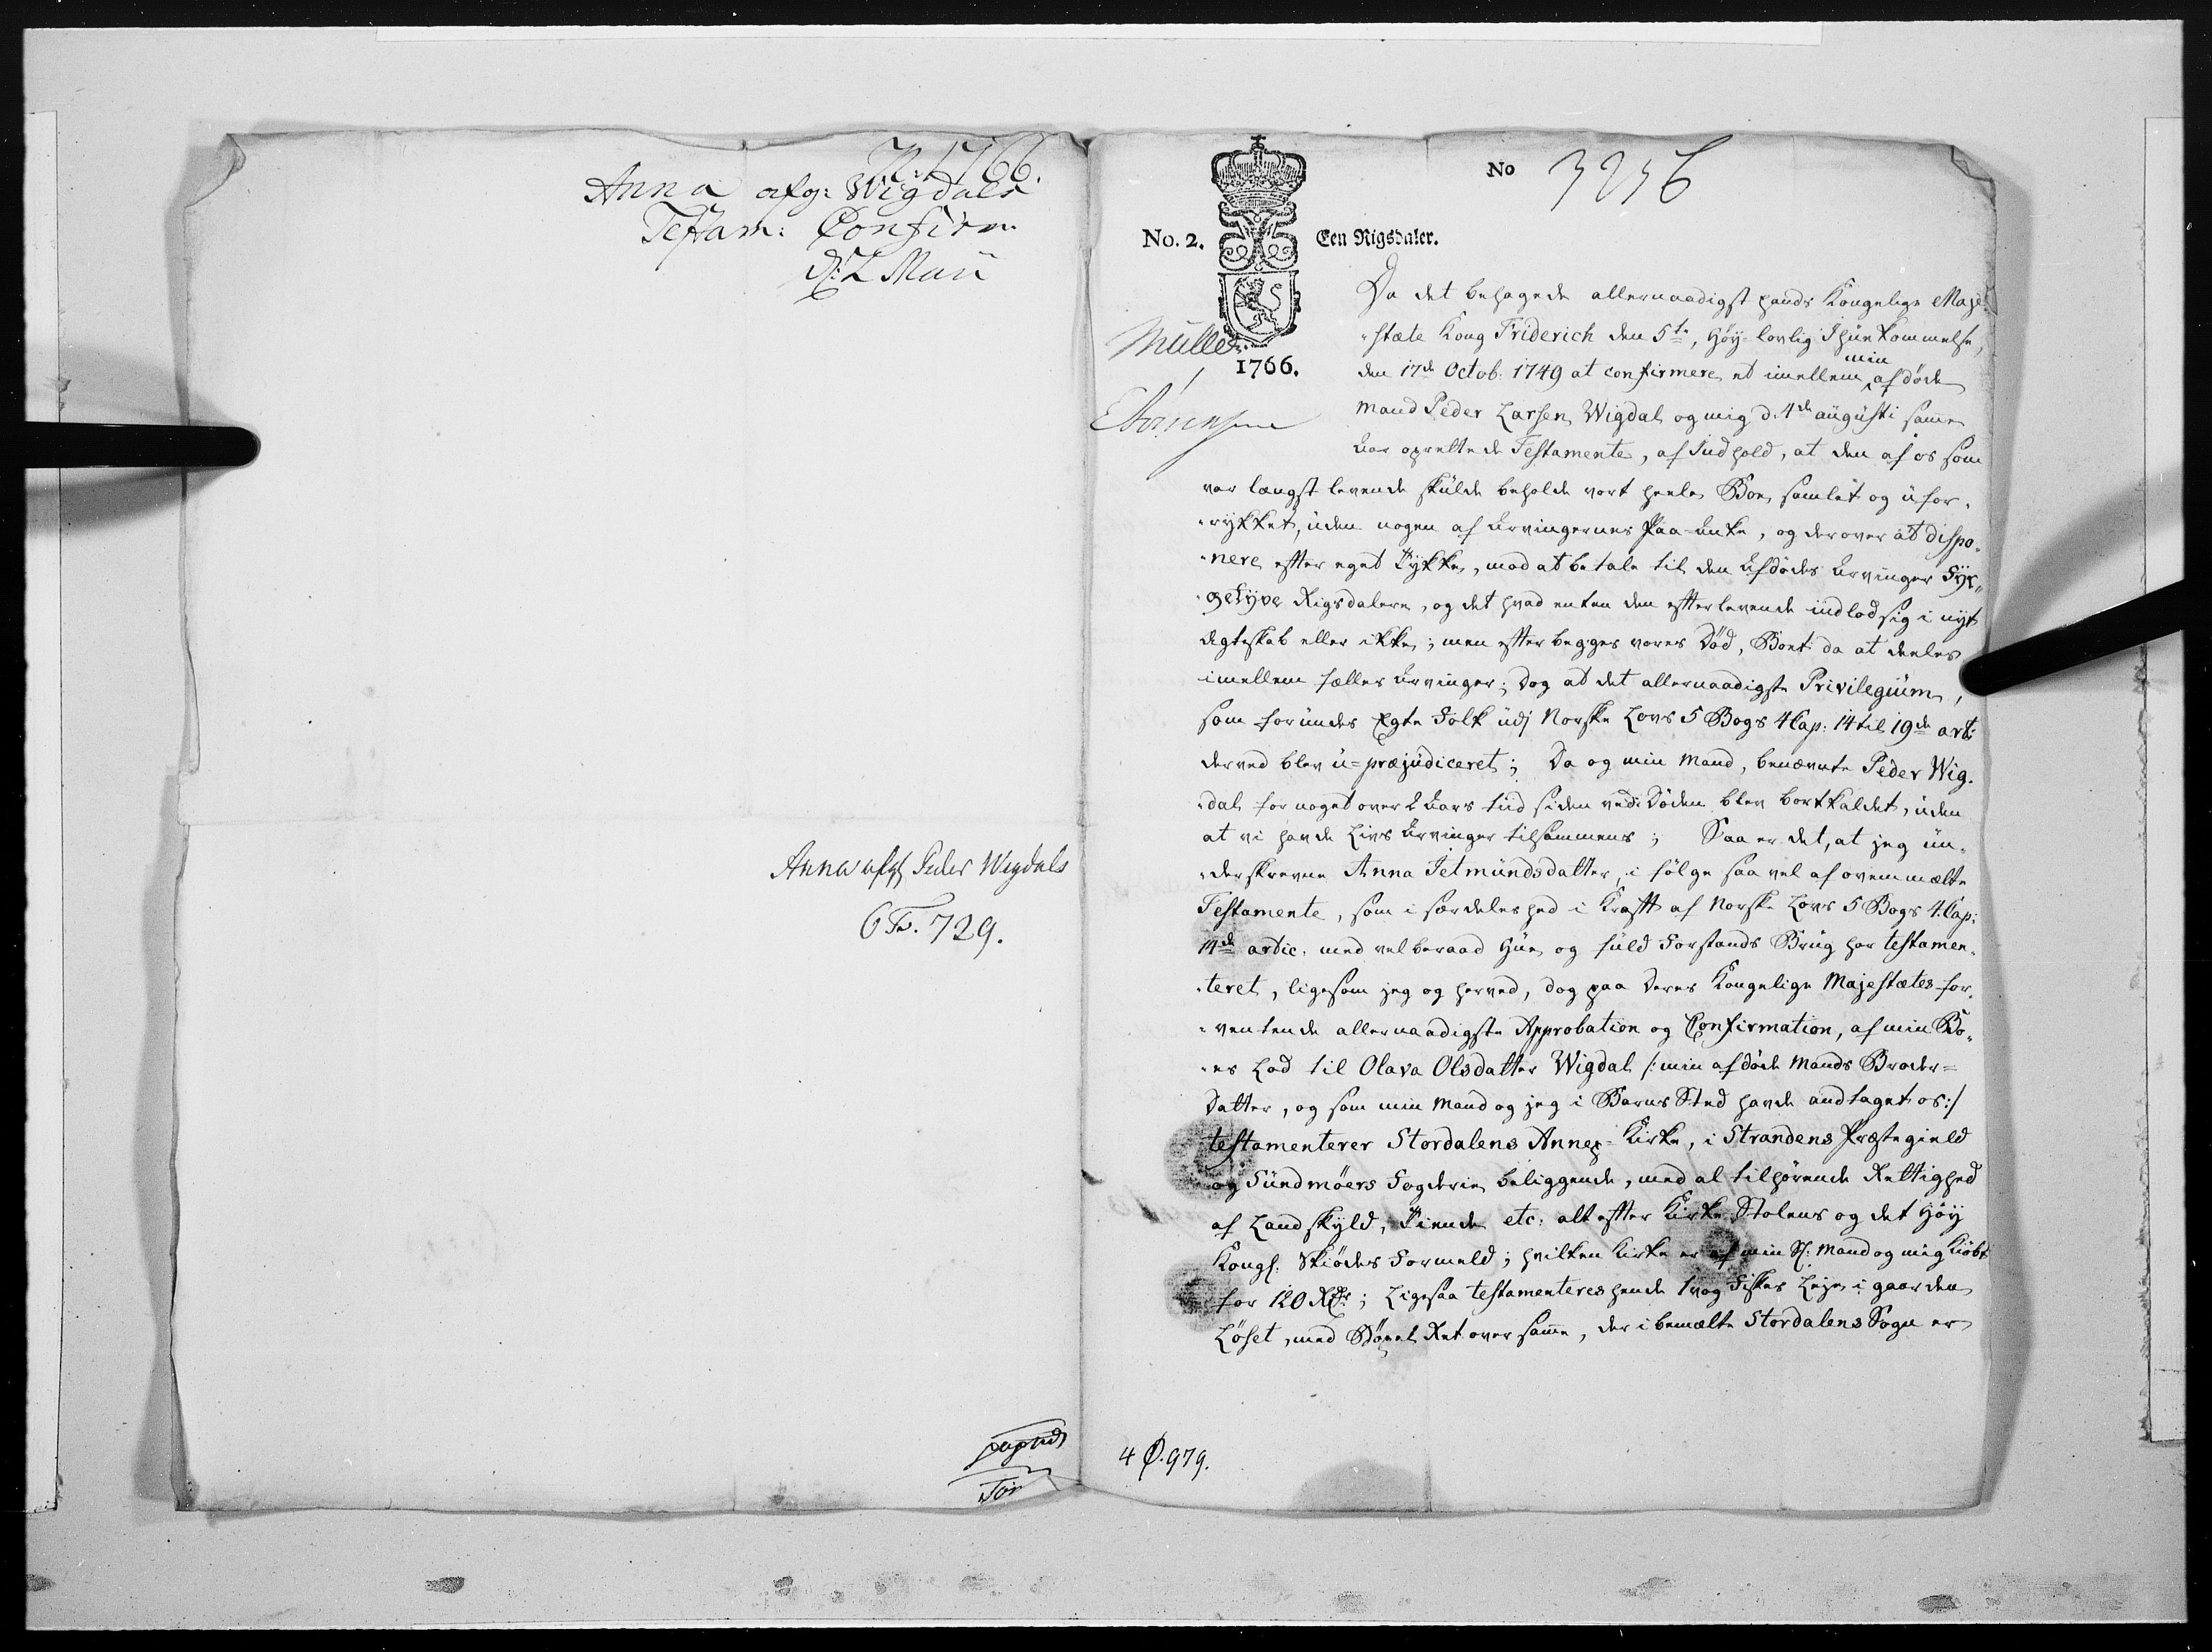 N. 1766.
Anna afg: Wigdals
Testam: Confirm.
d: 2 Maii
Anna afgl Peder Wigdals
6 Fr. 729.
No 3256
No. 2.
Een Rigsdaler.
Müller
1766.
Da det behagede allernaadigst hands Kongelige Maje-
stæte Kong Friderich den 5te, Høy-lovlig Ihukommelse,
den 17de Octob: 1749 at confirmere et imellem min afdøde
Mand Peder Larsen Wigdal og mig d. 4de augusti samme
Aar oprettede Testamente, af Indhold, at den af os som
var længst levende skulde beholde vort heele Boe samlet og ufor-
rykket, uden nogen af Arvingernes Paa-anke, og derover at dispo-
nere effter eget Tykke, mod at betale til den Afdødes Arvinger Fyr-
getyve Rigsdalere, og det hvad enten den effterlevende indlod sig i nyt
Ægteskab eller ikke; men effter begges vores Død, Boet da at deeles
imellem fælles Arvinger; dog at det allernaadigste Privilegium,
som forundes Egte Folk udj Norske Lovs 5 Bogs 4 Cap: 14 til 19de art:
derved blev u-præjudiceret; Da og min Mand, benævnte Peder Wig-
dal for noget over 2 Aars tiid siden ved Døden blev bortkaldet, uden
at vi havde Livs Arvinger tilsammens; Saa er det, at jeg un-
derskrevne Anna Jetmundsdatter, i følge saa vel af ovenmælte
Testamente, som i særdeleshed i Krafft af Norske Lovs 5 Bogs 4 Cap:
14de artic. med velberaad Hue og fuld Forstands Brug har testamen-
teret, ligesom jeg og herved, dog paa Deres Kongelige Majestætes for-
ventende allernaadigste Approbation og Confirmation, af min Bo-
es Lod til Olava Olsdatter Wigdal /: min afdøde Mands Broder-
Datter, og som min Mand og jeg i Barns Sted havde andtaget os :/
testamenterer Stordalens Annex-Kirke, i Strandens Præstegield
og Sundmøers Fogderie beliggende, med al tilhørende Rettighed
af Landskyld, Tiende etc: alt effter Kirke Stolens og det Høy
Kongl: Skiødes Formeld; hvilken Kirke er af min Sl: Mand og mig kiøbt
for 120 Rdr; Ligesaa testamenteres hende 1 vog Fiskes Leje i gaarden
Løset, med Bøxel Ret over samme, der i bemælte Stordalens Sogn er
4 O. 979.